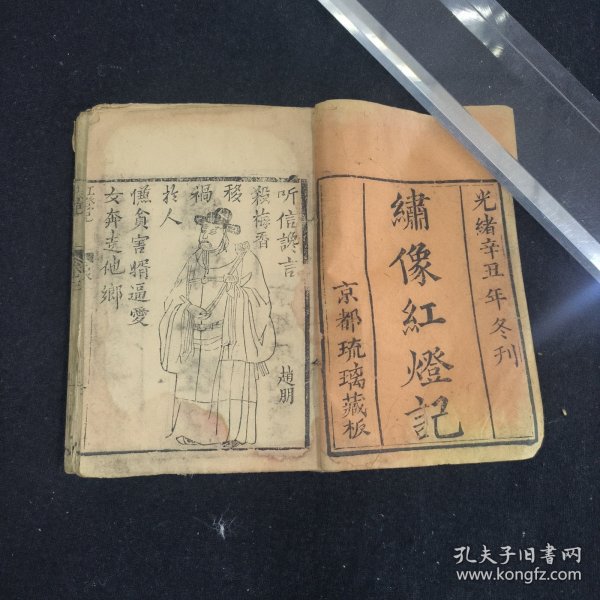 光緒辛丑年冬刊
繡像紅燈記
京都琉璃藏板
趙朋
听信讒言
殺梅香
移
禍
於人
憔貪害婿逼愛
女奔走他鄉
孔夫子旧书网
www.kongfz.com